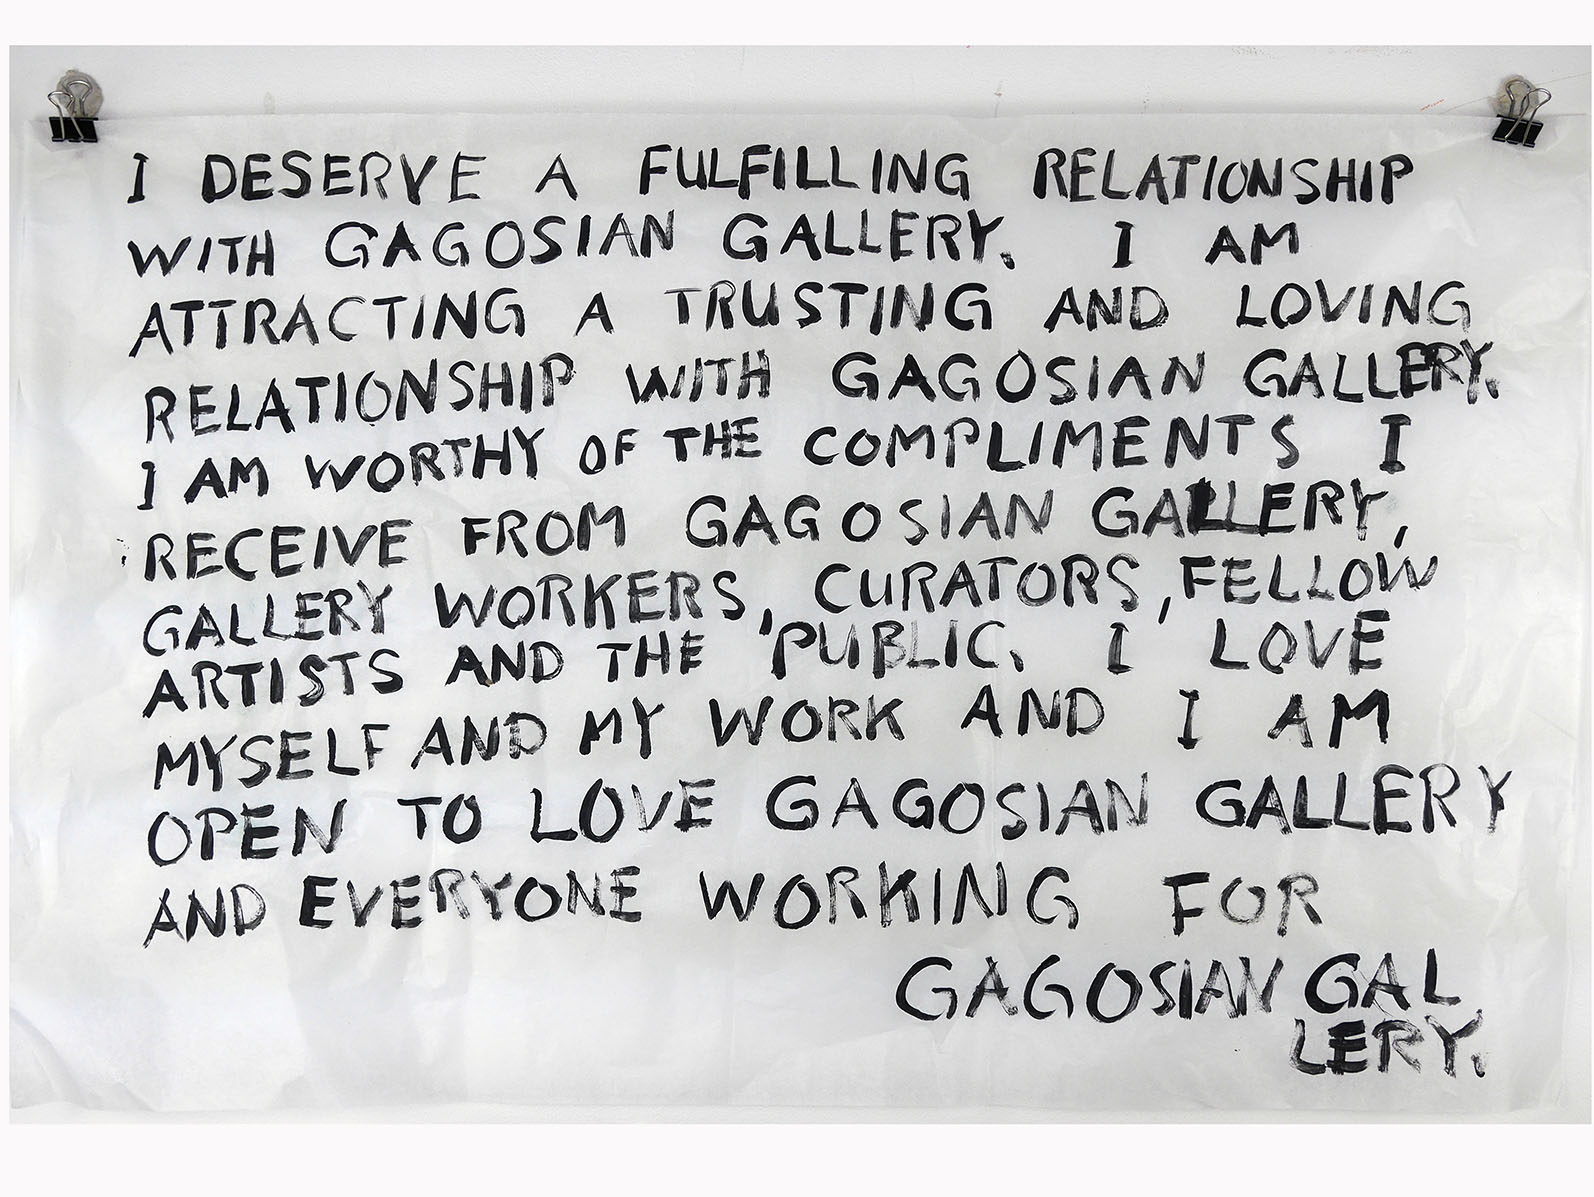 I DESERVE A FULFILLING RELATIONSHIP
WITH GAGOSIAN GALLERY. I AM
ATTRACTING A TRUSTING AND LOVING
RELATIONSHIP WITH GAGOSIAN GALLERY.
I AM WORTHY OF THE COMPLIMENTS I
RECEIVE FROM GAGOSIAN GALLERY,
GALLERY WORKERS, CURATORS, FELLOW
ARTISTS AND THE PUBLIC. I LOVE
MYSELF AND MY WORK AND I AM
OPEN TO LOVE GAGOSIAN GALLERY
AND EVERYONE WORKING FOR
GAGOSIAN GAL
LERY.